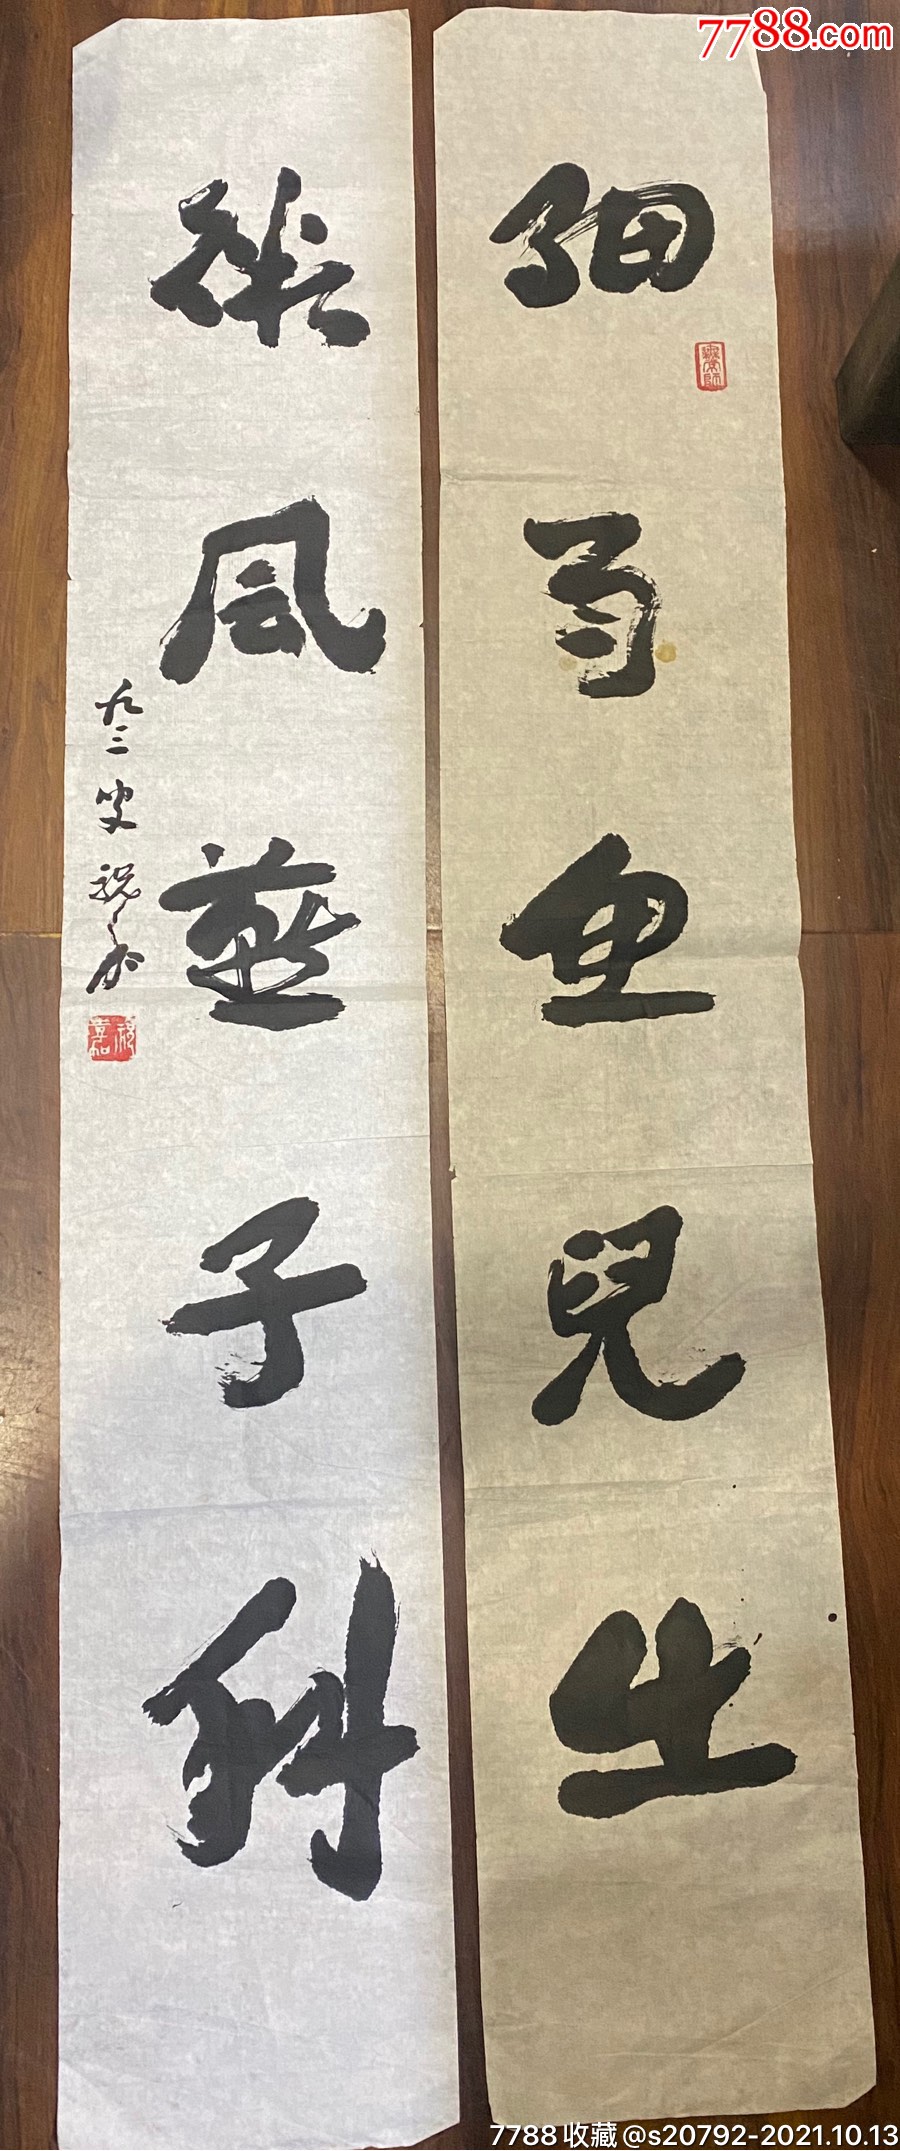 7788.com
細雨魚兒出
微風燕子斜
九三叟祝嘉
祝嘉
7788收藏@s20792-2021.10.13